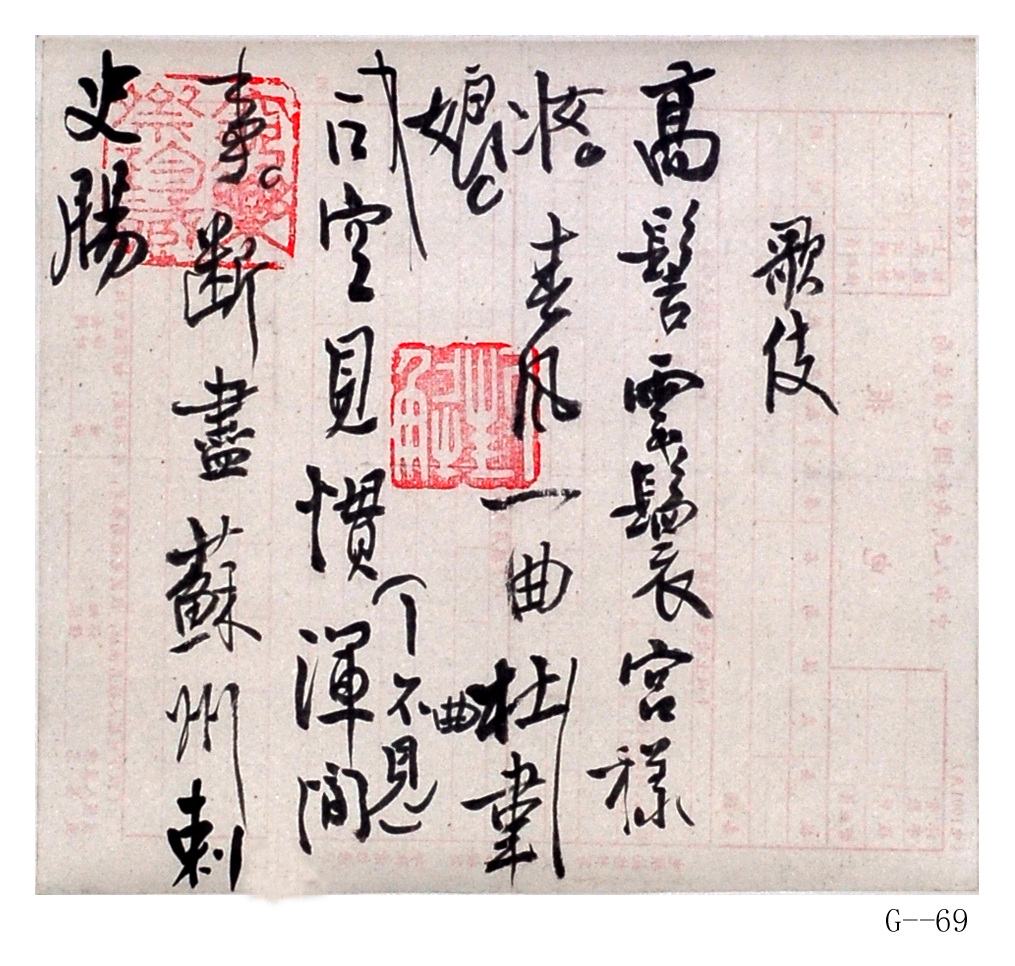 歌伎
高髻雲鬟宮樣
妝。春風一曲杜韋
娘。
不見
曲
司空見慣渾閒
事。斷盡蘇州刺
史腸
G--69